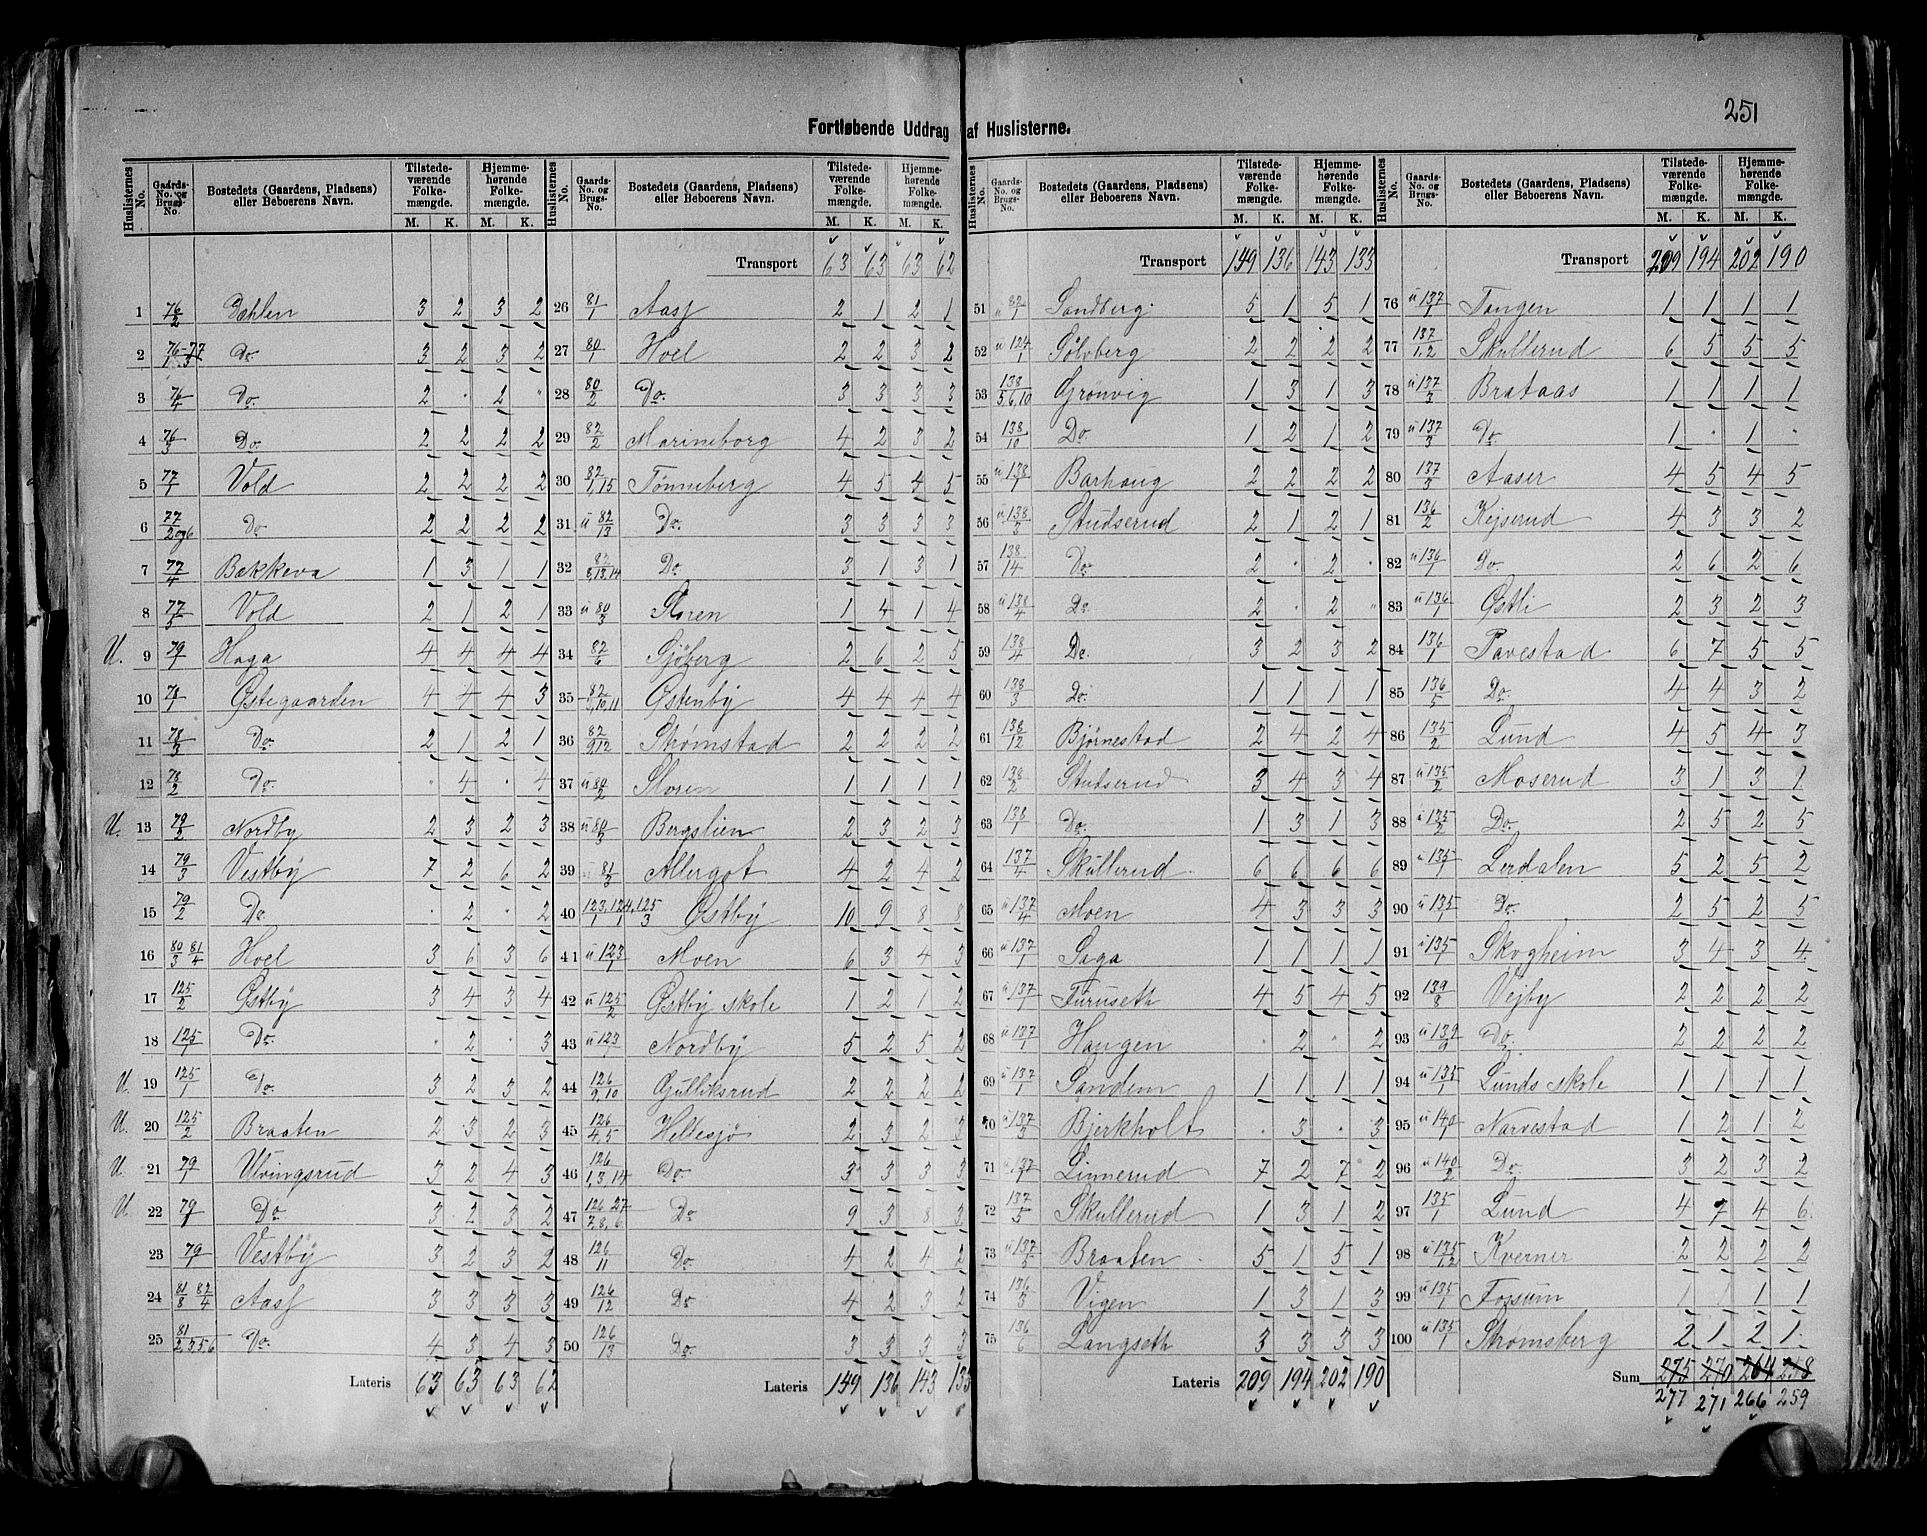 251
Fortløbende Uddrag af Huslisterne.
Huslisternes No. | Gaards-No. og Brugs-No. | Bostedets (Gaardens, Pladsens) eller Beboerens Navn. | Tilstedeværende Folkemængde. M. K. | Hjemmehørende Folkemængde. M. K.
1 76/2 Dæhlen 3 2 3 2
2 Do 3 2 3 2
3 76/4 Do. 2 · 2 "
4 76/3 Do. 2 2 2 2
5 77/1 Vold 2 2 2 2
6 77/2og6 Do 2 2 2 2
7 77/4 Bækkeva 1 3 1 1
8 77/3 Vold 2 1 2 1
U. 9 79/1 Haga 4 4 4 4
10 78/1 Østegaarden 4 4 4 3
11 78/3 Do. 2 1 2 1
12 78/2 Do. · 4 · 4
U. 13 79/2 Nordby 2 3 2 3
14 79/3 Vestby 7 2 6 2
15 79/2 Do. · 2 · 2
16 80/3 81/4 Hoel 3 6 3 6
17 125/2 Østby 3 4 3 4
18 125/1 Do. · 2 · 3
U. 19 125/1 Do. 3 2 3 2
U. 20 125/2 Braaten 2 3 2 3
U. 21 79/1 Ulvingsrud 3 2 4 3
U. 22 79/1 Do. 3 2 3 2
23 79/1 Vestby 3 2 3 2
24 81/8 82/4 Aasf 3 3 3 3
25 81/2,3,5,6 Do. 4 3 4 3
Lateris 63 63 63 62
Huslisternes No. | Gaards-No. og Brugs-No. | Bostedets (Gaardens, Pladsens) eller Beboerens Navn. | Tilstedeværende Folkemængde. M. K. | Hjemmehørende Folkemængde. M. K.
Transport 63 63 63 62
26 81/1 Aasf 2 1 2 1
27 80/1 Hoel 2 2 3 2
28 80/2 Do. 3 3 3 3
29 82/2 Marineborg 4 2 3 2
30 82/1,15 Tønneberg 4 5 4 5
31 u 82/13 Do. 3 3 3 3
32 82/8,13,14 Do. 3 1 3 1
33 u 80/3 Storen 1 4 1 4
34 82/6 Sjøberg 2 6 2 5
35 Østenby 4 4 4 4
36 82/9,12 Strømstad 2 2 2 2
37 u 80/2 Storen 1 1 1 1
38 u 80/3 Bergslien 2 3 2 3
39 81/3 Allergot 4 2 4 2
40 123/1, 124/1, 125/3 Østby 10 9 8 8
41 u 123/1 Moen 6 3 4 3
42 u 125/2 Østby skole 1 2 1 2
43 u 123/1 Nordby 5 2 5 2
44 126/9,10 Gulliksrud 2 2 2 2
45 126/4,5 Hellesjø 2 3 2 3
46 126/1,3,14 Do. 3 3 3 3
47 126 27/7,8,6 Do 9 3 8 3
48 126/11 Do. 4 2 4 2
49 126/12 Do 4 2 3 2
50 126/13 Do. 3 3 3 3
Lateris 149 136 143 133
Huslisternes No. | Gaards-No. og Brugs-No. | Bostedets (Gaardens, Pladsens) eller Beboerens Navn. | Tilstedeværende Folkemængde. M. K. | Hjemmehørende Folkemængde. M. K.
Transport 149 136 143 133
51 " 82/1 Sandberg. 5 1 5 1
52 u 124/1 Sølvberg 2 2 2 2
53 138/5,6,10 Grønvig 1 3 1 3
54 138/10 Do. 1 2 1 2
55 u 138/1 Barhaug 2 2 2 2
56 u 138/3 Studserud 2 1 2 1
57 138/14 Do. 2 · 2 ·
58 u 138/4 Do. 2 · 2 "
59 138/4 Do. 3 2 3 2
60 138/3 Do. 1 1 1 1
61 138/12 Bjørnestad 2 4 2 4
62 138/2 Studserud 3 4 3 4
63 138/1 Do. 1 3 1 3
64 137/4 Skullerud. 6 6 6 6
65 u 137/4 Moen 4 3 3 3
66 u 137/1 Saga 1 1 1 1
67 u 137/1 Furuseth 4 5 4 5
68 u 137/1 Haugen · 2 " 2
69 u 137/1 Sandem 1 1 1 1
70 u 137/3 Bjerkholt · 3 · 3
71 u 137/1 Linnerud 7 2 7 2
72 137/5 Skullerud 1 3 1 2
73 u 137/5 Braaten 5 1 5 1
74 136/3 Vigen 1 3 1 3
75 136/6 Langseth 3 3 3 3
Lateris 209 194 202 190
Huslisternes No. | Gaards-No. og Brugs-No. | Bostedets (Gaardens, Pladsens) eller Beboerens Navn. | Tilstedeværende Folkemængde. M. K. | Hjemmehørende Folkemængde. M. K.
Transport 209 194 202 190
76 u 137/1 Tangen 1 1 1 1
77 137/1,2 Skullerud 6 5 5 5
78 u 137/3 Brataas 1 1 1 1
79 u 137/3 Do. 1 · 1 "
80 137/3 Aaser 4 5 4 5
81 136/2 Kejserud 4 3 3 2
82 u 136/1 Do. 2 6 2 6
83 u 136/1 Østli 2 3 2 3
84 136/1 Pavestad. 6 7 5 5
85 136/5 Do. 4 4 3 2
86 135/2 Lund 4 5 4 3
87 u 135/2 Moserud 3 1 3 1
88 u 135/2 Do. 2 5 2 5
89 u 135/1 Lerdalen 5 2 5 2
90 u 135/1 Do. 2 5 2 5
91 u 135/1 Skogheim 3 4 3 4
92 139/8 Vejby 2 2 2 2
93 u 139/9 Do. 2 2 2 2
94 u 135/1 Lunds skole 1 1 1 1
95 u 140/1 Narvestad 1 2 1 2
96 u 140/2 Do. 3 2 3 2
97 135/1 Lund 4 7 4 6
98 u 135/12 Kverner 2 2 2 2
99 u 135/1 Forsum 1 1 1 1
100 u 135/1 Strømsberg 2 1 2 1
Sum 275 270 264 258
277 271 266 259